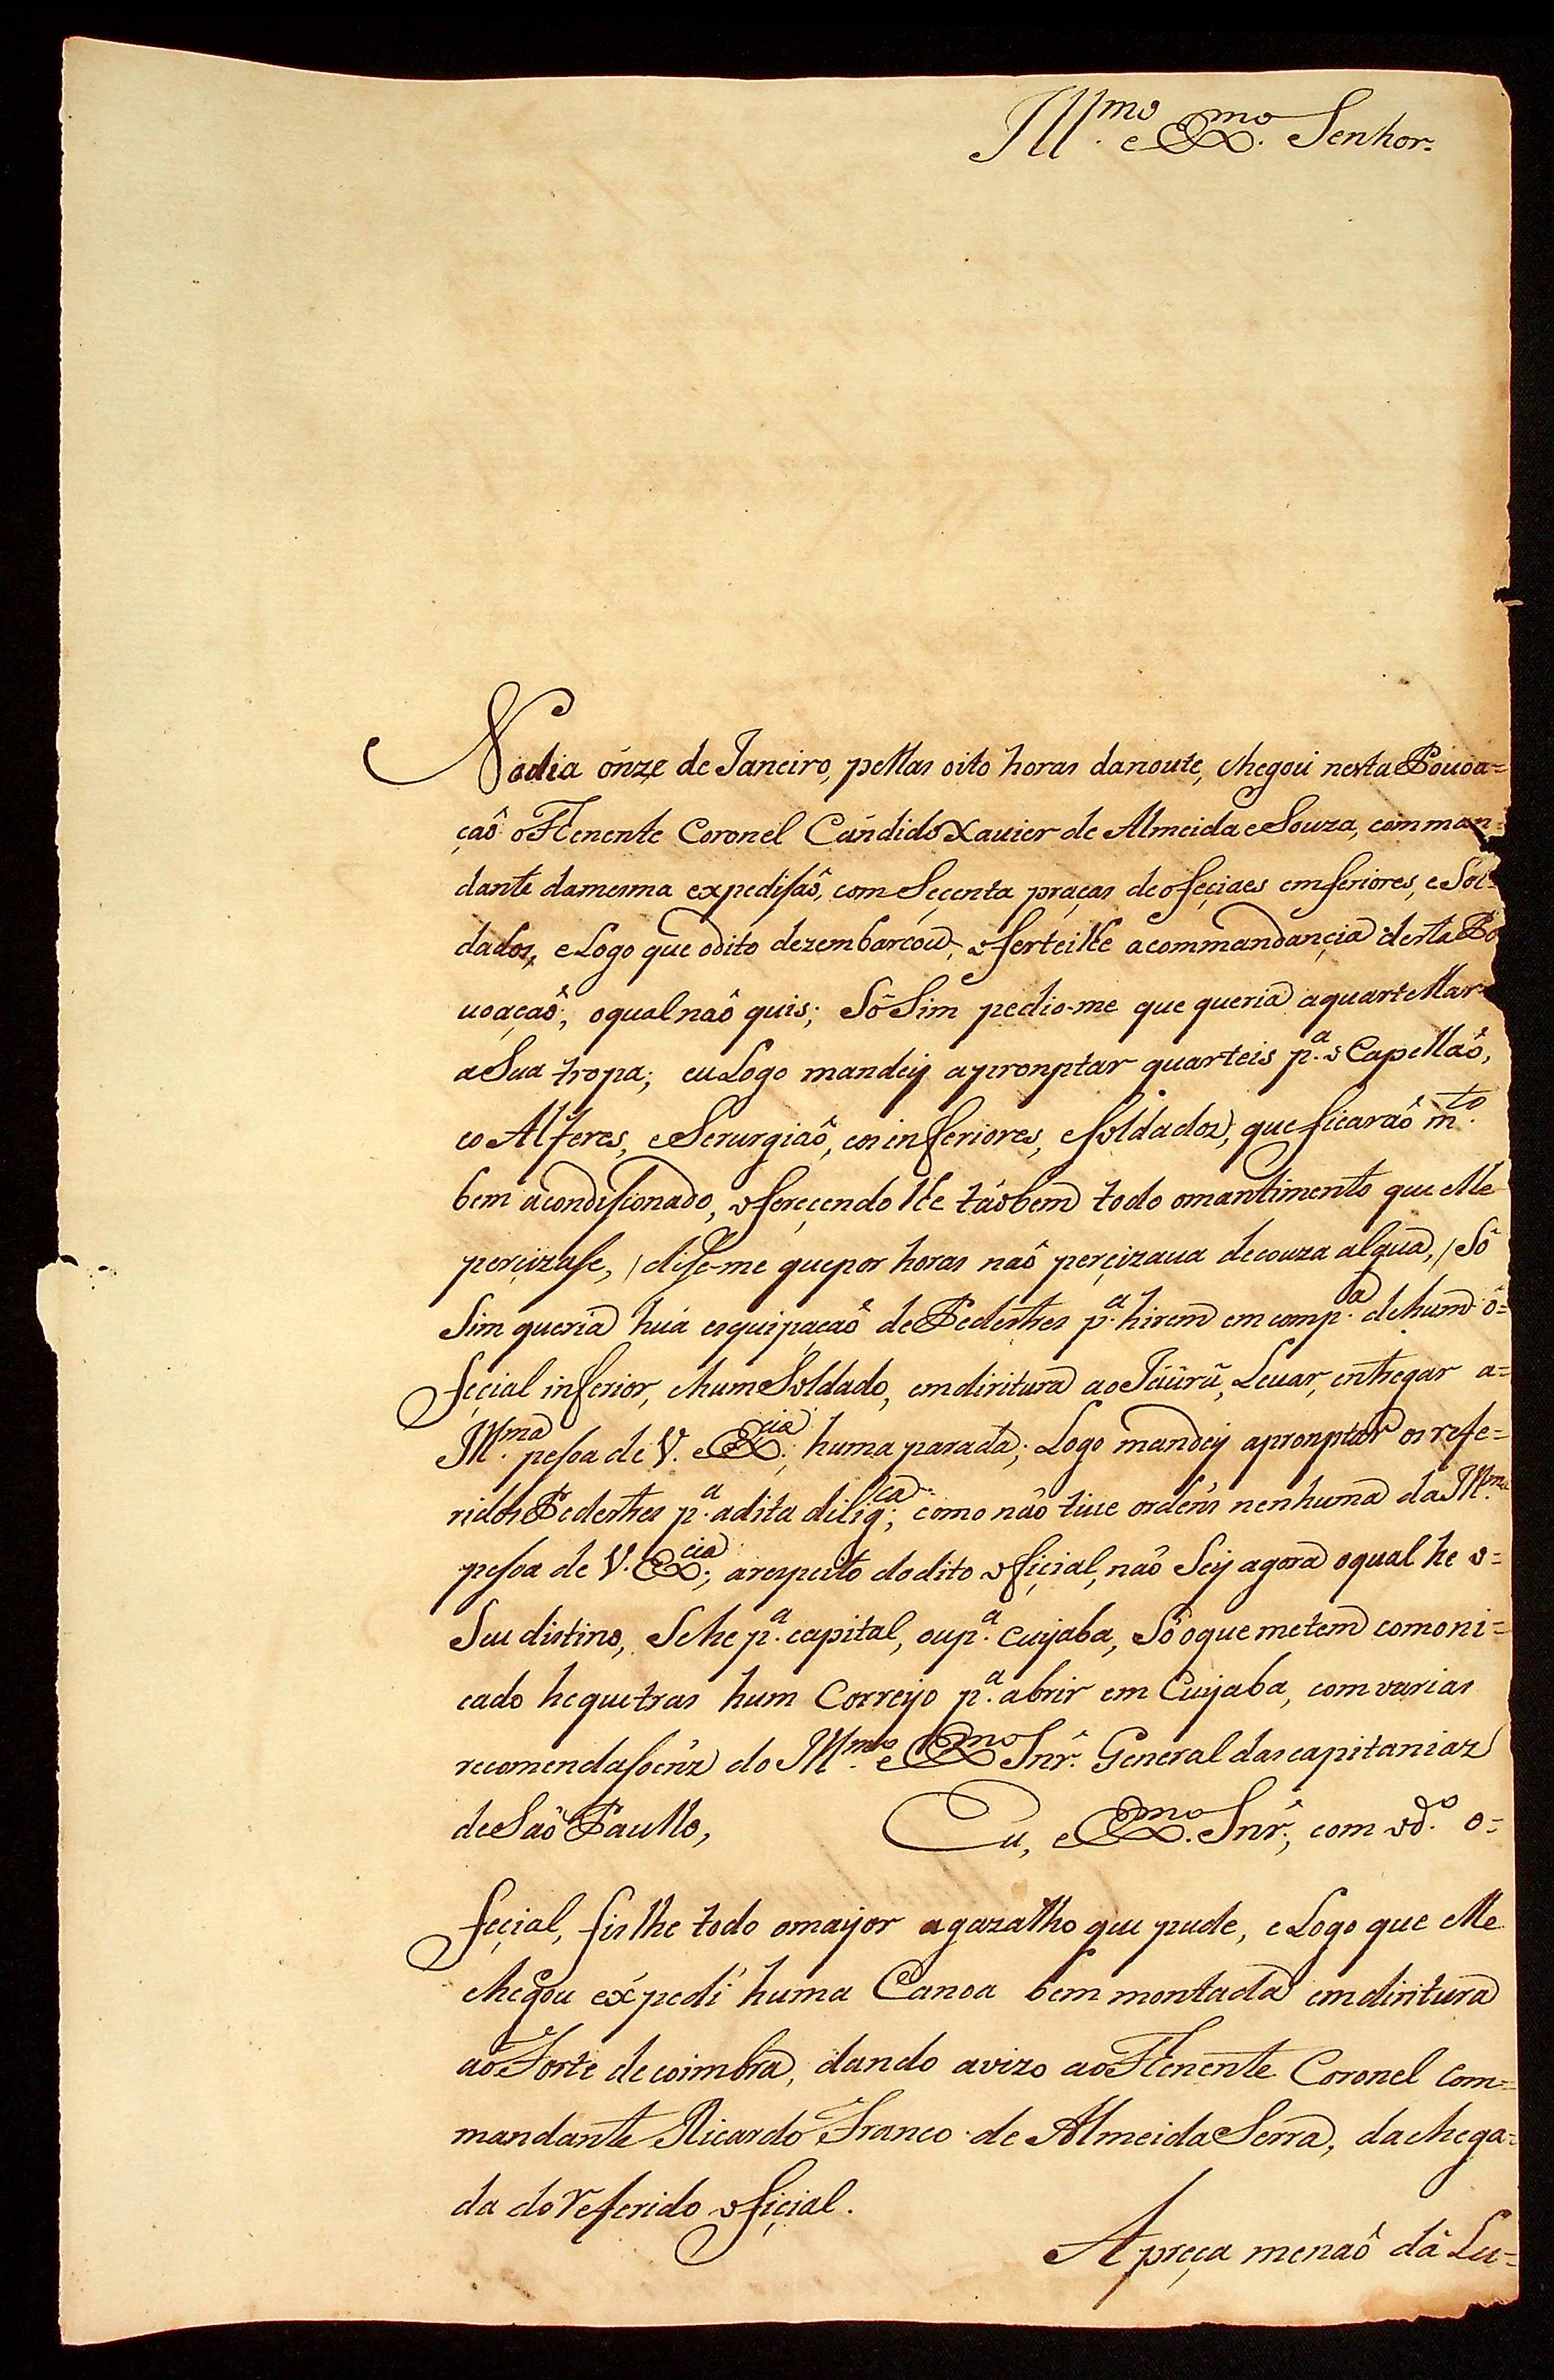 Ill.mo e Ex.mo Senhor.
Nodia ônze de Janeiro, pellas oito horas danoute, chegou nesta Povoa=
çaõ o Tenente Coronel Cándido Xavier de Almeida e Souza, comman=
dante damesma expedisaõ, com Seçenta praças de ofeçiaes emferiores, e Sol=
dados, e Logo que odito dezembarcou, oferteilhe acommandançia desta Po
uoaçaõ, oqual naõ quis; Só Sim pedio-me que queria aquartellar
a Sua tropa; eu Logo mandey apronptar quarteis p.a o Capellaõ,
eo Alferes, e Serurgiaõ, eos inferiores, esoldados, que ficaraõ m.to
bem acondisionado, ofereçendo lhe táobem todo omantimento que elle
perçizase, / dise-me que por horas naõ perçizaua decouza algua, / Só
Sim queria huá esquipaçaõ de Pedestres p.a hirem em comp.a dehum o=
feçial inferior, ehum Soldado, emdiritura ao Jaûrû, Leuar, entregar a=
Ill.ma pesoa de V. Ex.cia; huma parada; Logo mandey apronptar os refe=
ridos Pedestres p.a adita dilig.ca; como não tiue ordéns nenhuma da Ill.ma
pesoa de V. Ex.cia; arespeito dodito ofiçial, naõ Sey agora oqual he o=
Seu distino, Sehe p.a capital, oup.a Cuyaba, Só oque metem comoni=
cado heque tras hum Correyo p.a abrir em Cuyaba, com varias
recomendasoénz do Ill.mo e Ex.mo Snr. General dascapitaniaz
de Saõ Paullo, Eu, e Ex.mo Snr; com od.o o=
feçial, fis lhe todo omayor agazalho que pude, e Logo que elle
chegou éxpedi huma Canoa bem montada emdiritura
ao Forte decoimbra, dando avizo ao Tenente Coronel Com=
mandante Ricardo Franco de Almeida Serra, dachega=
da do referido ofiçial.
A preça menaõ dá Lu=